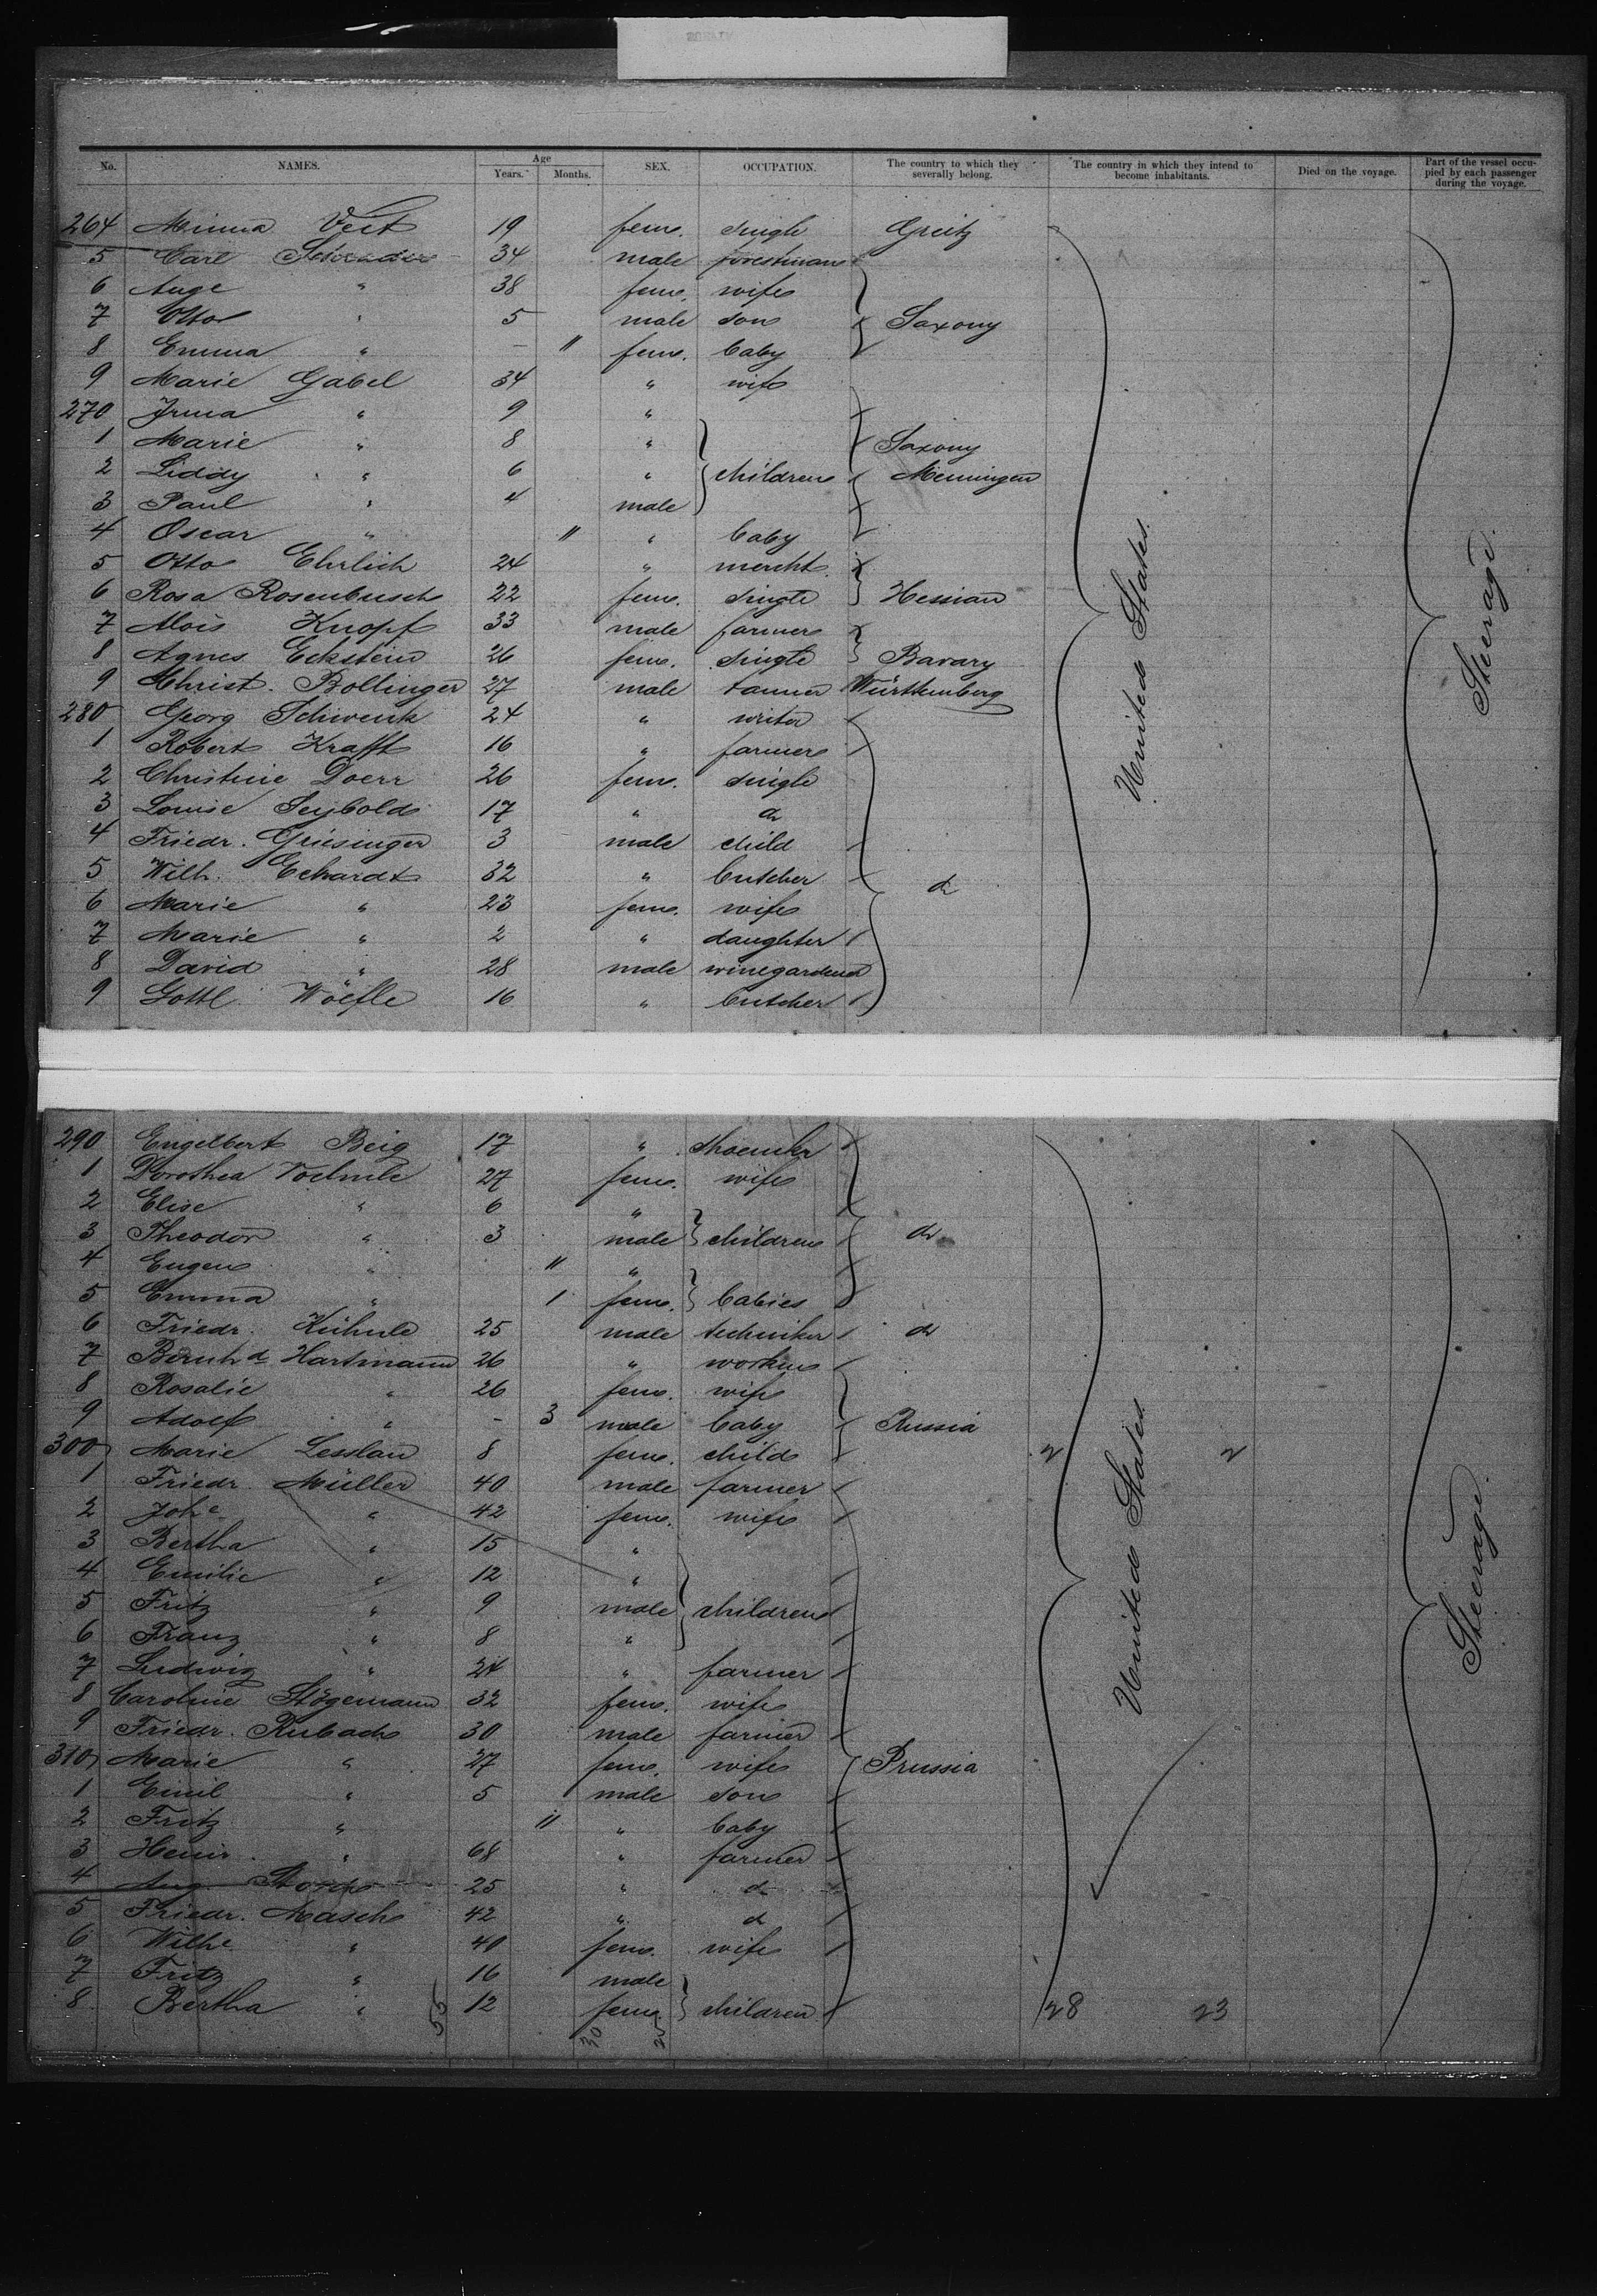 No. NAMES. Age Years. Months. SEX. OCCUPATION. The country to which they severally belong. The country in which they intend to become inhabitants. Died on the voyage. Part of the vessel occupied by each passenger during the voyage.
264 Minna Veit 19 fem. single Greitz
5 Carl Schrader 34 male forestman
6 Auge " 38 fem. wife
7 Otto " 5 male son Saxony
8 Emma " - 11 fem. baby
9 Marie Gabel 34 " wife
270 Irma " 9 "
1 Marie " 8 " Saxony
2 Liddy " 6 " children Meiningen
3 Paul " 4 male
4 Oscar " 11 " baby
5 Otto Ehrlich 24 " mercht.
6 Rosa Rosenbusch 22 fem. single Hessian
7 Alois Knopf 33 male farmer
8 Agnes Eckstein 26 fem. single Bavary
9 Christ. Bollinger 27 male tanner Württemberg
280 Georg Schwenk 24 " writer
1 Robert Krafft 16 " farmer
2 Christine Doerr 26 fem. single
3 Louise Seybold 17 " do
4 Friedr. Griesinger 3 male child
5 Wilh. Echardt 32 " butcher do
6 Marie " 23 fem. wife
7 Marie " 2 " daughter
8 David " 28 male winegardener
9 Gottl. Wöefle 16 " butcher
United States.
Steerage.
290 Engelbert Beig 17 " shoemkr
1 Dorothea Voehnle 27 fem. wife
2 Elise " 6 "
3 Theodor " 3 male children do
4 Eugen " 11 "
5 Emma " 1 fem. babies
6 Friedr. Kühnle 25 male techniker do
7 Bernhd Hartmann 26 " workm
8 Rosalie " 26 fem. wife
9 Adolf " - 3 male baby Russia
300 Marie Lesslau 8 fem. child 2 2
1 Friedr. Müller 40 male farmer
2 Johe " 42 fem. wife
3 Bertha " 15 "
4 Emilie " 12 "
5 Fritz " 9 male children
6 Franz " 8 "
7 Ludwig " 24 " farmer
8 Caroline Stögemann 32 fem. wife
9 Friedr. Rubach 30 male farmer
310 Marie " 27 fem. wife Prussia
1 Emil " 5 male son
2 Fritz " 11 " baby
3 Heinr. " 68 " farmer
4 Aug. 25 " do
5 Friedr. Masch 42 " do
6 Wilhe " 40 fem. wife
7 Fritz " 16 male
8 Bertha " 12 fem. children 28 23
55 30 25
United States
Steerage.